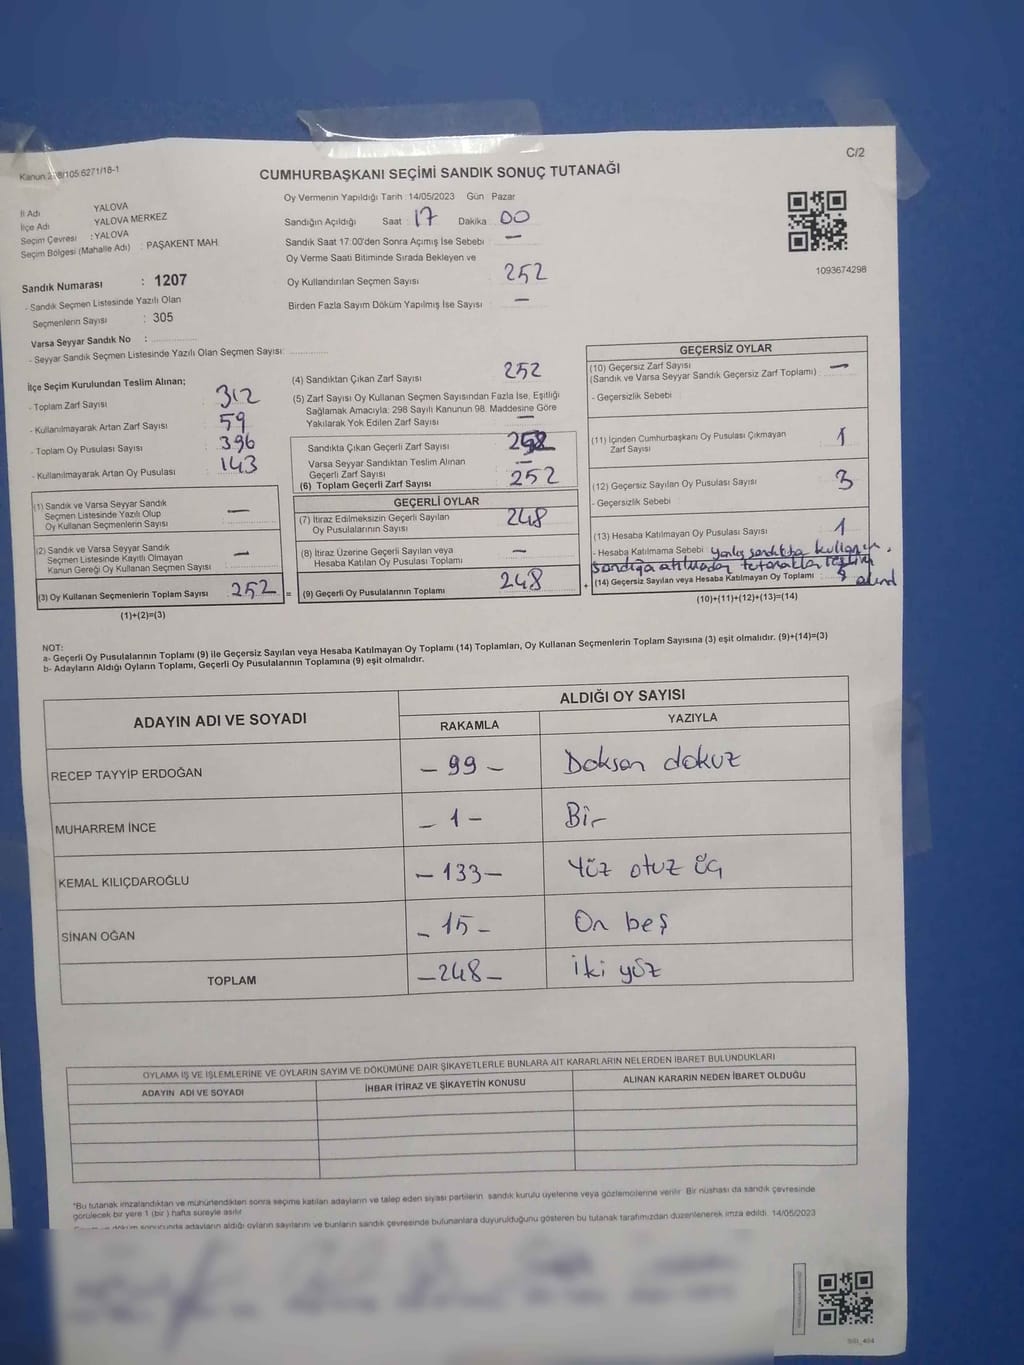 C/2
CUMHURBAŞKANI SEÇİMİ SANDIK SONUÇ TUTANAĞI
Oy Vermenin Yapıldığı Tarih 14/05/2023 Gün Pazar
İl Adı YALOVA
İlçe Adı YALOVA MERKEZ
Seçim Çevresi : YALOVA
Seçim Bölgesi (Mahalle Adı) : PAŞAKENT MAH.
Sandık Numarası : 1207
- Sandık Seçmen Listesinde Yazılı Olan
Seçmenlerin Sayısı : 305
Varsa Seyyar Sandık No :
- Seyyar Sandık Seçmen Listesinde Yazılı Olan Seçmen Sayısı:
Sandığın Açıldığı Saat : 17 Dakika : 00
Sandık Saat 17:00'den Sonra Açımış İse Sebebi : —
Oy Verme Saati Bitiminde Sırada Bekleyen ve
Oy Kullandırılan Seçmen Sayısı : 252
Birden Fazla Sayım Döküm Yapılmış İse Sayısı : —
1093674298
İlçe Seçim Kurulundan Teslim Alınan;
- Toplam Zarf Sayısı : 312
- Kullanılmayarak Artan Zarf Sayısı : 59
- Toplam Oy Pusulası Sayısı : 396
- Kullanılmayarak Artan Oy Pusulası : 143
(1) Sandık ve Varsa Seyyar Sandık
Seçmen Listesinde Yazılı Olup
Oy Kullanan Seçmenlerin Sayısı : —
(2) Sandık ve Varsa Seyyar Sandık
Seçmen Listesinde Kayıtlı Olmayan
Kanun Gereği Oy Kullanan Seçmen Sayısı : —
(3) Oy Kullanan Seçmenlerin Toplam Sayısı : 252
(1)+(2)=(3)
(4) Sandıktan Çıkan Zarf Sayısı : 252
(5) Zarf Sayısı Oy Kullanan Seçmen Sayısından Fazla İse, Eşitliği
Sağlamak Amacıyla: 298 Sayılı Kanunun 98. Maddesine Göre
Yakılarak Yok Edilen Zarf Sayısı : —
Sandıkta Çıkan Geçerli Zarf Sayısı :
Varsa Seyyar Sandıktan Teslim Alınan
Geçerli Zarf Sayısı : —
(6) Toplam Geçerli Zarf Sayısı : 252
GEÇERLİ OYLAR
(7) İtiraz Edilmeksizin Geçerli Sayılan
Oy Pusulalarının Sayısı : 248
(8) İtiraz Üzerine Geçerli Sayılan veya
Hesaba Katılan Oy Pusulası Toplamı : —
= (9) Geçerli Oy Pusulalarının Toplamı : 248 +
GEÇERSİZ OYLAR
(10) Geçersiz Zarf Sayısı
(Sandık ve Varsa Seyyar Sandık Geçersiz Zarf Toplamı) : —
- Geçersizlik Sebebi :
(11) İçinden Cumhurbaşkanı Oy Pusulası Çıkmayan
Zarf Sayısı : 1
(12) Geçersiz Sayılan Oy Pusulası Sayısı : 3
- Geçersizlik Sebebi :
(13) Hesaba Katılmayan Oy Pusulası Sayısı : 1
- Hesaba Katılmama Sebebi : yanlış sandıkta
sandığa atılmadan
(14) Geçersiz Sayılan veya Hesaba Katılmayan Oy Toplamı :
(10)+(11)+(12)+(13)=(14)
NOT:
a- Geçerli Oy Pusulalarının Toplamı (9) ile Geçersiz Sayılan veya Hesaba Katılmayan Oy Toplamı (14) Toplamları, Oy Kullanan Seçmenlerin Toplam Sayısına (3) eşit olmalıdır. (9)+(14)=(3)
b- Adayların Aldığı Oyların Toplamı, Geçerli Oy Pusulalarının Toplamına (9) eşit olmalıdır.
ADAYIN ADI VE SOYADI ALDIĞI OY SAYISI
RAKAMLA YAZIYLA
RECEP TAYYİP ERDOĞAN – 99 – Doksan dokuz
MUHARREM İNCE – 1 – Bir
KEMAL KILIÇDAROĞLU – 133 – Yüz otuz üç
SİNAN OĞAN – 15 – On beş
TOPLAM – 248 – iki yüz
OYLAMA İŞ VE İŞLEMLERİNE VE OYLARIN SAYIM VE DÖKÜMÜNE DAİR ŞİKAYETLERLE BUNLARA AİT KARARLARIN NELERDEN İBARET BULUNDUKLARI
ADAYIN ADI VE SOYADI İHBAR İTİRAZ VE ŞİKAYETİN KONUSU ALINAN KARARIN NEDEN İBARET OLDUĞU
*Bu tutanak imzalandıktan ve mühürlendikten sonra seçime katılan adayların ve talep eden siyasi partilerin sandık kurulu üyelerine veya gözlemcilerine verilir. Bir nüshası da sandık çevresinde
görülecek bir yere 1 (bir) hafta süreyle asılır.
döküm sonucunda adayların aldığı oyların sayılarını ve bunların sandık çevresinde bulunanlara duyurulduğunu gösteren bu tutanak tarafımızdan düzenlenerek imza edildi. 14/05/2023